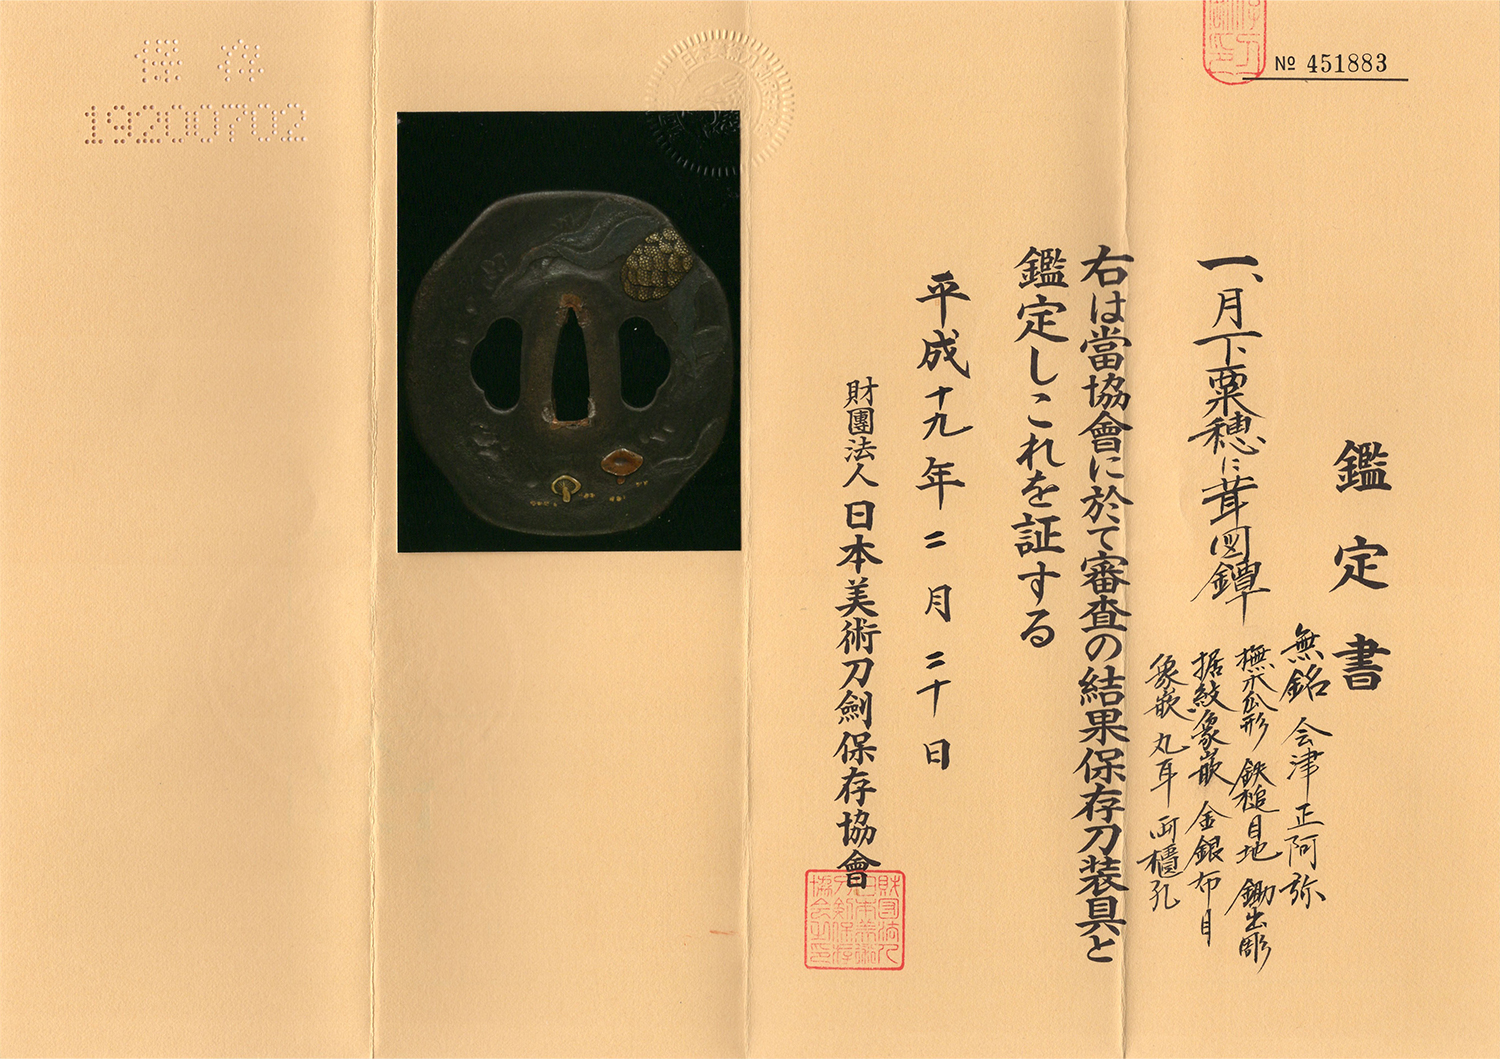 № 451883
鑑定書
一、月下粟穂に茸図鐔
無銘 会津正阿弥
撫木瓜形 鉄槌目地 鋤出彫
据紋象嵌 金銀布目
象嵌 丸耳 両櫃孔
右は當協會に於て審査の結果保存刀装具と
鑑定しこれを証する
平成十九年二月二十日
財團法人 日本美術刀劍保存協會
保存
19200702